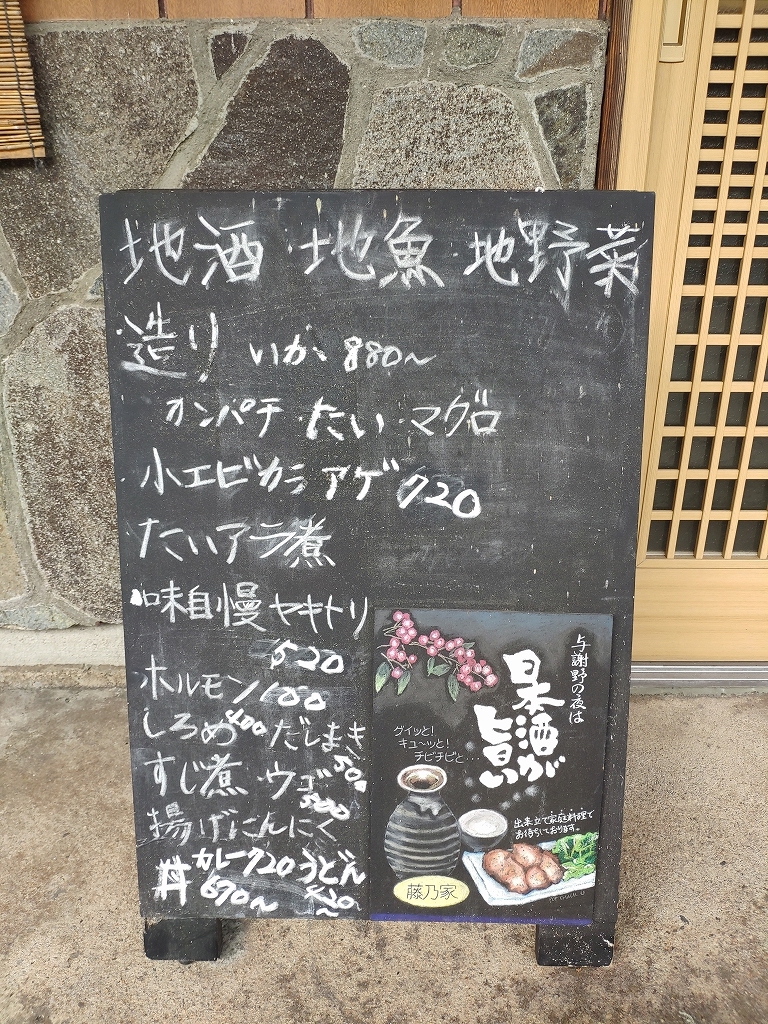 地酒・地魚・地野菜
造り いか 880〜
カンパチ・たい・マグロ
小エビカラアゲ 720
たいアラ煮
味自慢ヤキトリ
520
ホルモン100
しろめ400 だしまき
500
すじ煮・ウゴ
500
揚げにんにく
丼 カレー720 うどん
690〜
与謝野の夜は
日本酒が
旨い
グイッと!
キュ〜ッと!
チビチビと...
出来立て家庭料理で
お待ちしております。
藤乃家